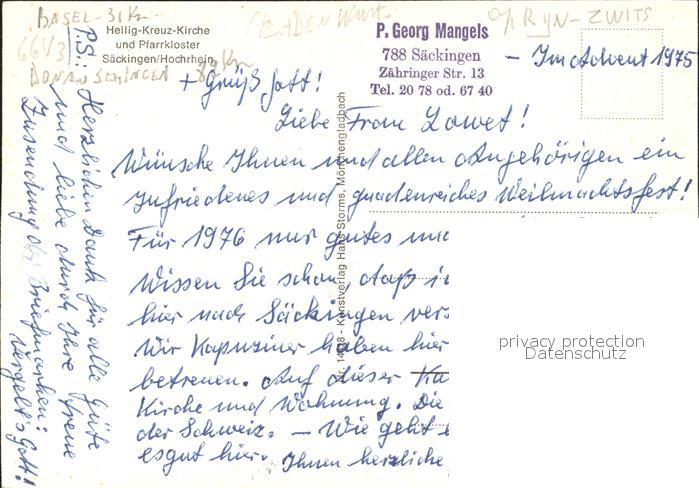 BASEL - 31 Km
(BADEN Wurt.
o/ RIJN - ZWITS
66 V 3
DONAUESCHINGEN 82 Km
Heilig-Kreuz-Kirche
und Pfarrkloster
Säckingen/Hochrhein
P. Georg Mangels
788 Säckingen
Zähringer Str. 13
Tel. 20 78 od. 67 40
- Im Advent 1975
+ Grüß Gott!
Liebe Frau Lowet!
Wünsche Ihnen und allen Angehörigen ein
zufriedenes und gnadenreiches Weihnachtsfest!
Für 1976 nur gutes und
Wissen Sie schon, daß i
hier nach Säckingen vers
Wir Kapuziner haben hier
betreuen. Auf dieser Ka
Kirche und Wohnung. Die
der Schweiz. - Wie geht e
es gut hier. Ihnen herzliche
P.S.: Herzlichen Dank für alle Güte
und liebe durch Ihre treue
Zusendung der Briefmarken:
Vergelt's Gott!
Nr. 14 - Kunstverlag Hans Storms, Mönchengladbach
privacy protection
Datenschutz